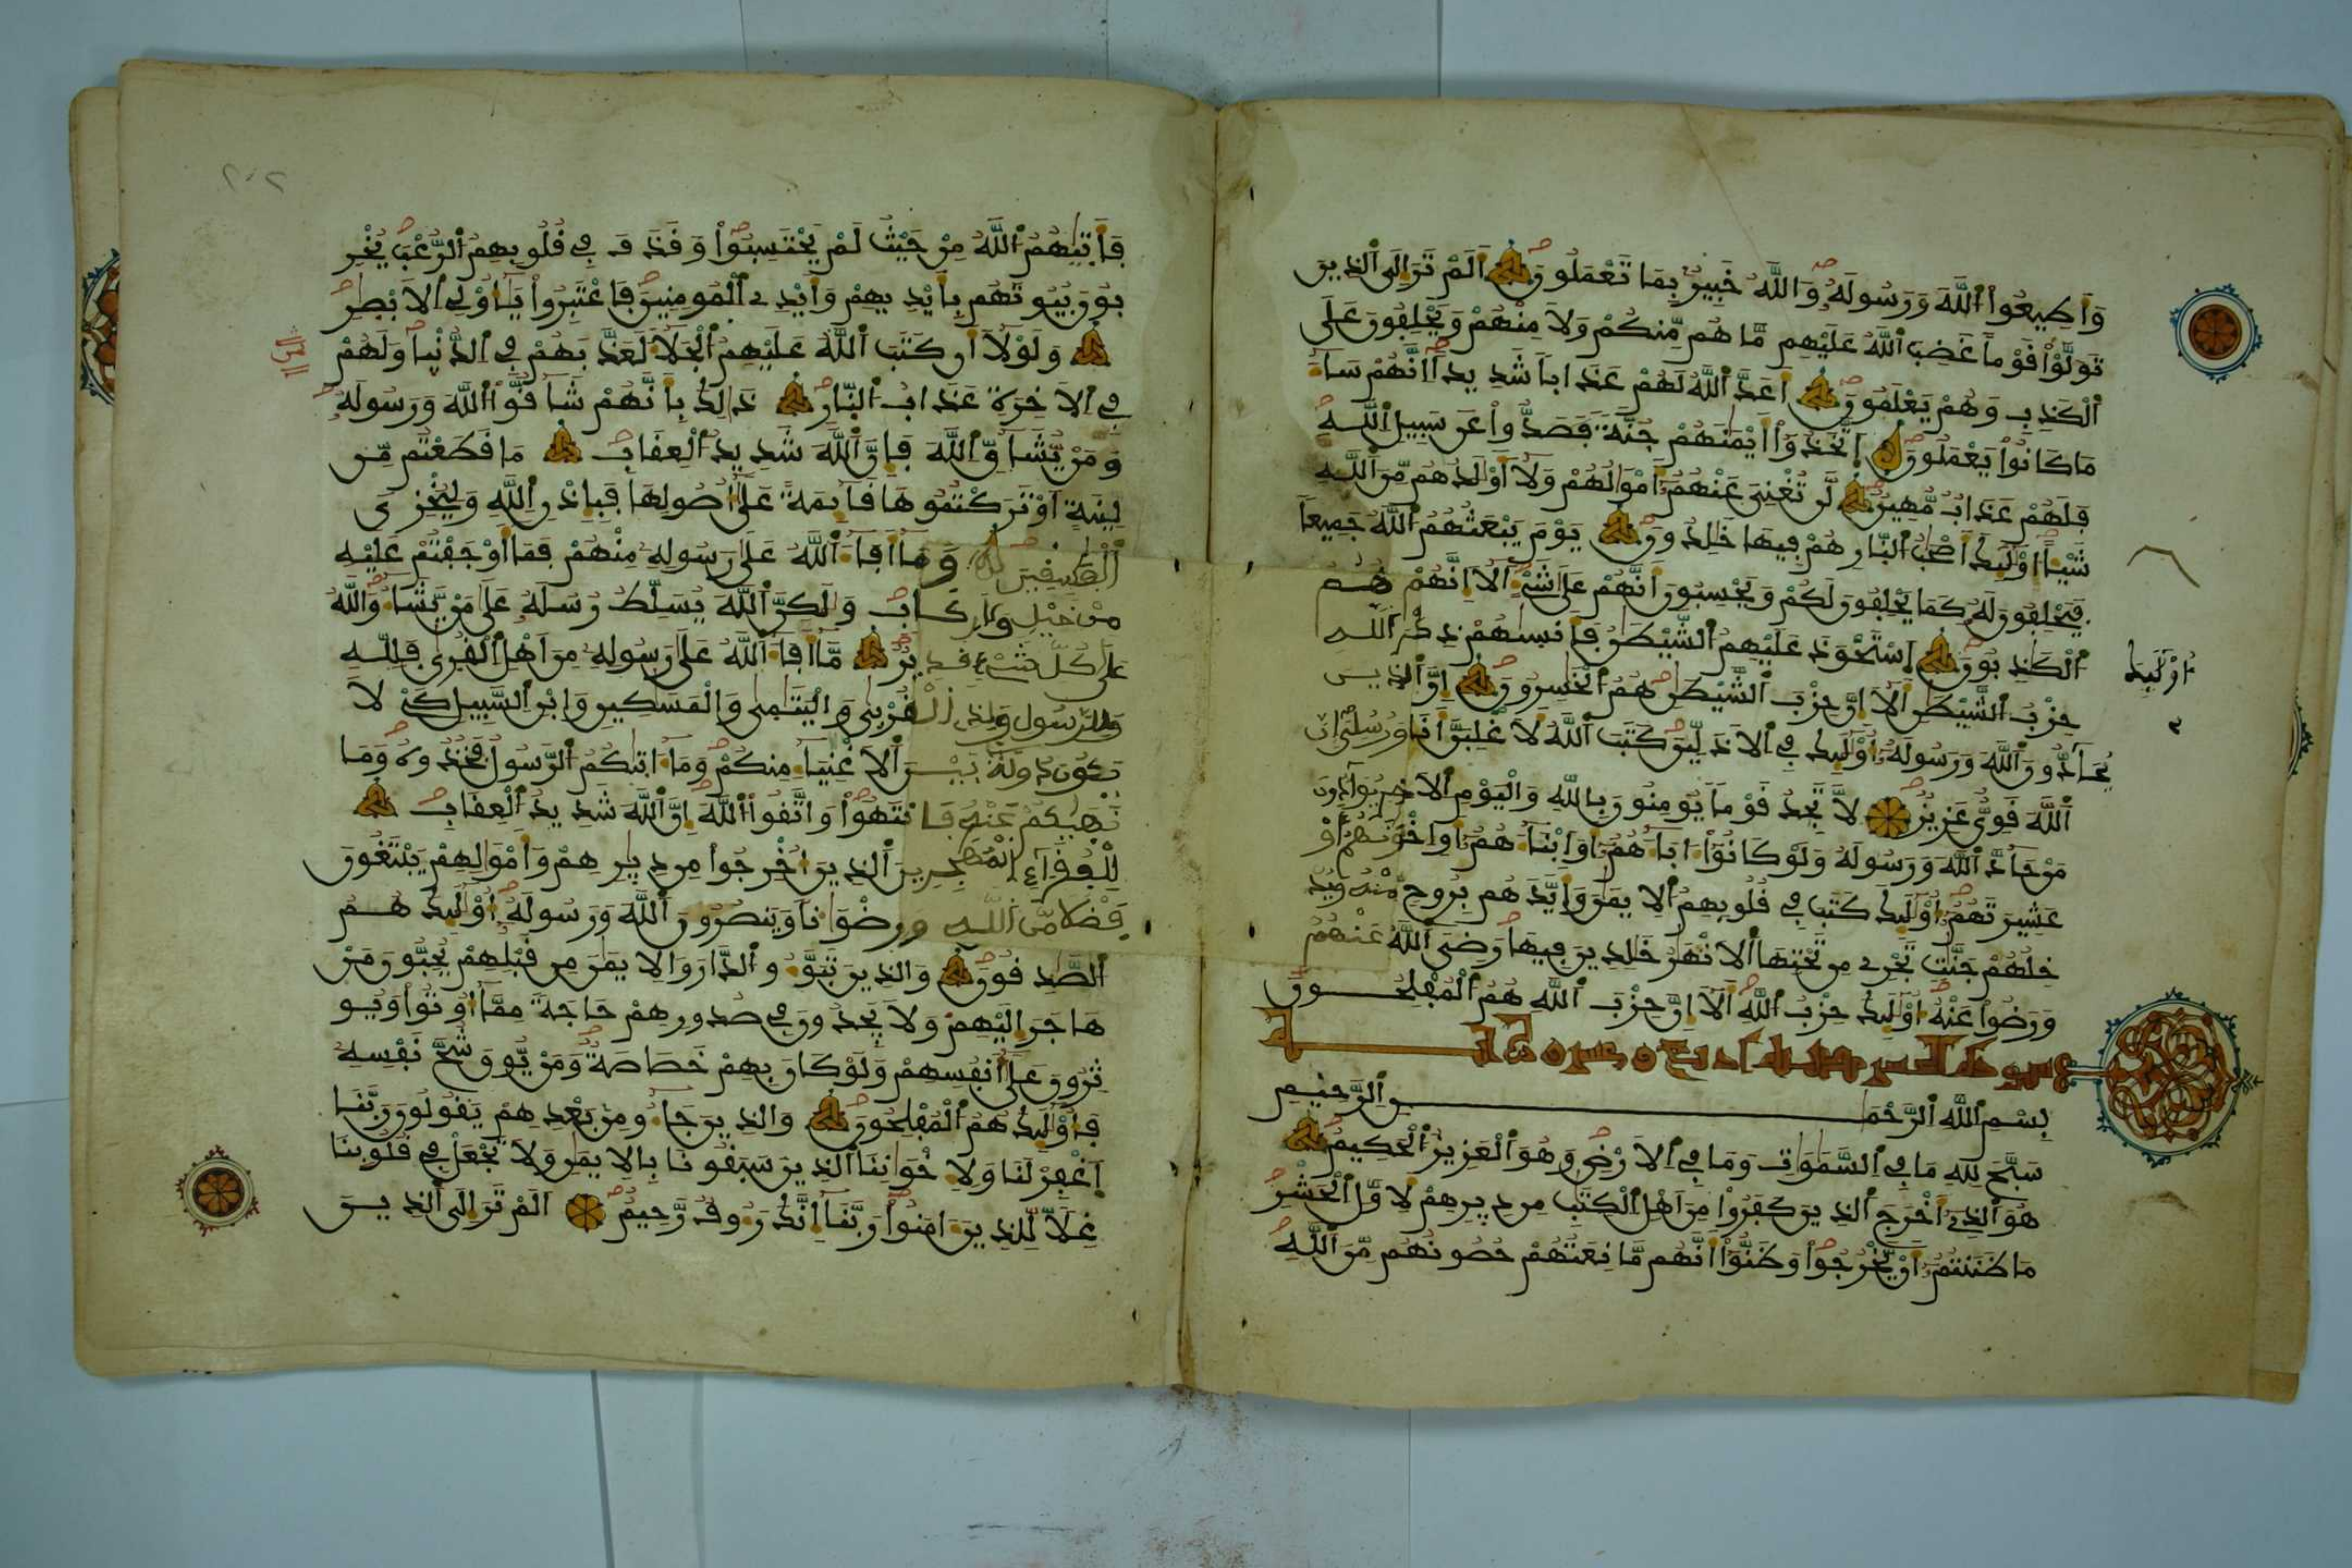 وَأَطِيعُواْ اُللَّهَ وَرَسُولَهُۥ وَاللَّهُ خَبِيرٌۢ بِمَا تَعْمَلُونَ أَلَمْ تَرَ إِلَى اَلذِينَ
تَوَلَّوْاْ قَوْماً غَضِبَ اَللَّهُ عَلَيْهِم مَّا هُم مِّنكُمْ وَلَا مِنْهُمْ وَيَحْلِفُونَ عَلَى
اَلْكَذِبِ وَهُمْ يَعْلَمُونَ أَعَدَّ اَللَّهُ لَهُمْ عَذَاباً شَدِيداً اِنَّهُمْ سَآءَ
مَا كَانُواْ يَعْمَلُونَ اَتَّخَذُوٓاْ أَيْمَٰنَهُمْ جُنَّةً فَصَدُّواْ عَن سَبِيلِ اِللَّهِ
فَلَهُمْ عَذَابٌ مُّهِينٌ لَّن تُغْنِيَ عَنْهُمُۥٓ أَمْوَٰلُهُمْ وَلَآ أَوْلَٰدُهُم مِّنَ اَللَّهِ
شَيْـٔاً اوْلَٰٓئِكَ أَصْحَٰبُ اُلنَّارِ هُمْ فِيهَا خَٰلِدُونَ يَوْمَ يَبْعَثُهُمُ اُللَّهُ جَمِيعاً
فَيَحْلِفُونَ لَهُۥ كَمَا يَحْلِفُونَ لَكُمْ وَيَحْسِبُونَ أَنَّهُمْ عَلَىٰ شَےْءٍ اَلَآ إِنَّهُمْ هُمُ
اُلْكَٰذِبُونَ اَسْتَحْوَذَ عَلَيْهِمُ اُلشَّيْطَٰنُ فَأَنسَىٰهُمْ ذِكْرَ اَللَّهِ
أُوْلَٰٓئِكَ
حِزْبُ اُلشَّيْطَٰنِ أَلَآ إِنَّ حِزْبَ اَلشَّيْطَٰنِ هُمُ اُلْخَٰسِرُونَ إِنَّ اَلذِينَ
يُحَآدُّونَ اَللَّهَ وَرَسُولَهُۥٓ أُوْلَٰٓئِكَ فِي اِلَاذَلِّينَ كَتَبَ اَللَّهُ لَأَغْلِبَنَّ أَنَا وَرُسُلِيَ إِنَّ
اَللَّهَ قَوِيٌّ عَزِيزٌ لَّا تَجِدُ قَوْماً يُومِنُونَ بِاللَّهِ وَالْيَوْمِ اِلَاخِرِ يُوَآدُّونَ
مَنْ حَآدَّ اَللَّهَ وَرَسُولَهُۥ وَلَوْ كَانُوٓاْ ءَابَآءَهُمُۥٓ أَوَ اَبْنَآءَهُمُۥٓ أَوِ اِخْوَٰنَهُمُۥٓ أَوْ
عَشِيرَتَهُمُۥٓ أُوْلَٰٓئِكَ كَتَبَ فِي قُلُوبِهِمُ اُلِايمَٰنَ وَأَيَّدَهُم بِرُوحٍ مِّنْهُ وَيُدْ
خِلُهُمْ جَنَّٰتٍ تَجْرِے مِن تَحْتِهَا اَلَانْهَٰرُ خَٰلِدِينَ فِيهَا رَضِيَ اَللَّهُ عَنْهُمْ
وَرَضُواْ عَنْهُ أُوْلَٰٓئِكَ حِزْبُ اُللَّهِ أَلَآ إِنَّ حِزْبَ اَللَّهِ هُمُ اُلْمُفْلِحُونَ
بِسْمِ اِللَّهِ اِلرَّحْمَٰنِ اِلرَّحِيمِ
سَبَّحَ لِلهِ مَا فِي اِلسَّمَٰوَٰتِ وَمَا فِي اِلَارْضِ وَهُوَ اَلْعَزِيزُ اُلْحَكِيمُ
هُوَ اَلذِےٓ أَخْرَجَ اَلذِينَ كَفَرُواْ مِنَ اَهْلِ اِلْكِتَٰبِ مِن دِيٰرِهِمْ لِأَوَّلِ اِلْحَشْرِ
مَا ظَنَنتُمُۥٓ أَنْ يَّخْرُجُواْ وَظَنُّوٓاْ أَنَّهُم مَّانِعَتُهُمْ حُصُونُهُم مِّنَ اَللَّهِ
٢٠٢
فَأَتَىٰهُمُ اُللَّهُ مِنْ حَيْثُ لَمْ يَحْتَسِبُواْ وَقَذَفَ فِي قُلُوبِهِمُ اُلرُّعْبَ يُخْرِ
بُونَ بُيُوتَهُم بِأَيْدِيهِمْ وَأَيْدِے اِلْمُومِنِينَ فَاعْتَبِرُواْ يَٰٓأُوْلِي اِلَابْصٰرِ
وَلَوْلَآ أَن كَتَبَ اَللَّهُ عَلَيْهِمُ اُلْجَلَآءَ لَعَذَّبَهُمْ فِي اِلدُّنْيٰا وَلَهُمْ
فِي اِلَاخِرَةِ عَذَابُ اُلنّٰارِ ذَٰلِكَ بِأَنَّهُمْ شَآقُّواْ اُللَّهَ وَرَسُولَهُۥ
وَمَنْ يُّشَآقِّ اِللَّهَ فَإِنَّ اَللَّهَ شَدِيدُ اُلْعِقَابِ مَا قَطَعْتُم مِّن
لِّينَةٍ اَوْ تَرَكْتُمُوهَا قَآئِمَةً عَلَىٰٓ أُصُولِهَا فَبِإِذْنِ اِللَّهِ وَلِيُخْزِيَ
اَلْفَٰسِقِينَ وَمَآ أَفَآءَ اَللَّهُ عَلَىٰ رَسُولِهِۦ مِنْهُمْ فَمَآ أَوْجَفْتُمْ عَلَيْهِ
مِنْ خَيْلٍ وَلَا رِكَابٍ وَلَٰكِنَّ اَللَّهَ يُسَلِّطُ رُسُلَهُۥ عَلَىٰ مَنْ يَّشَآءُ وَاللَّهُ
عَلَىٰ كُلِّ شَےْءٍ قَدِيرٌ مَّآ أَفَآءَ اَللَّهُ عَلَىٰ رَسُولِهِۦ مِنَ اَهْلِ اِلْقُرىٰ فَلِلهِ
وَلِلرَّسُولِ وَلِذِے اِلْقُرْبىٰ وَالْيَتَٰمىٰ وَالْمَسَٰكِينِ وَابْنِ اِلسَّبِيلِ كَےْ لَا
يَكُونَ دُولَةَۢ بَيْنَ اَلَاغْنِيَآءِ مِنكُمْ وَمَآ ءَاتىٰكُمُ اُلرَّسُولُ فَخُذُوهُ وَمَا
نَهىٰكُمْ عَنْهُ فَانتَهُواْ وَاتَّقُواْ اُللَّهَ إِنَّ اَللَّهَ شَدِيدُ اُلْعِقَابِ
لِلْفُقَرَآءِ اِلْمُهَٰجِرِينَ اَلذِينَ أُخْرِجُواْ مِن دِيٰرِهِمْ وَأَمْوَٰلِهِمْ يَبْتَغُونَ
فَضْلاً مِّنَ اَللَّهِ وَرِضْوَٰناً وَيَنصُرُونَ اَللَّهَ وَرَسُولَهُۥٓ أُوْلَٰٓئِكَ هُمُ
اُلصَّٰدِقُونَ وَالذِينَ تَبَوَّءُو اُلدَّارَ وَالِايمَٰنَ مِن قَبْلِهِمْ يُحِبُّونَ مَنْ
هَاجَرَ إِلَيْهِمْ وَلَا يَجِدُونَ فِي صُدُورِهِمْ حَاجَةً مِّمَّآ أُوتُواْ وَيُو
ثِرُونَ عَلَىٰٓ أَنفُسِهِمْ وَلَوْ كَانَ بِهِمْ خَصَاصَةٌ وَمَنْ يُّوقَ شُحَّ نَفْسِهِۦ
فَأُوْلَٰٓئِكَ هُمُ اُلْمُفْلِحُونَ وَالذِينَ جَآءُو مِنۢ بَعْدِهِمْ يَقُولُونَ رَبَّنَا
اَغْفِرْ لَنَا وَلِإِخْوَٰنِنَا اَلذِينَ سَبَقُونَا بِالِايمَٰنِ وَلَا تَجْعَلْ فِي قُلُوبِنَا
غِلّاً لِّلذِينَ ءَامَنُواْ رَبَّنَآ إِنَّكَ رَءُوفٌ رَّحِيمٌ اَلَمْ تَرَ إِلَى اَلذِينَ